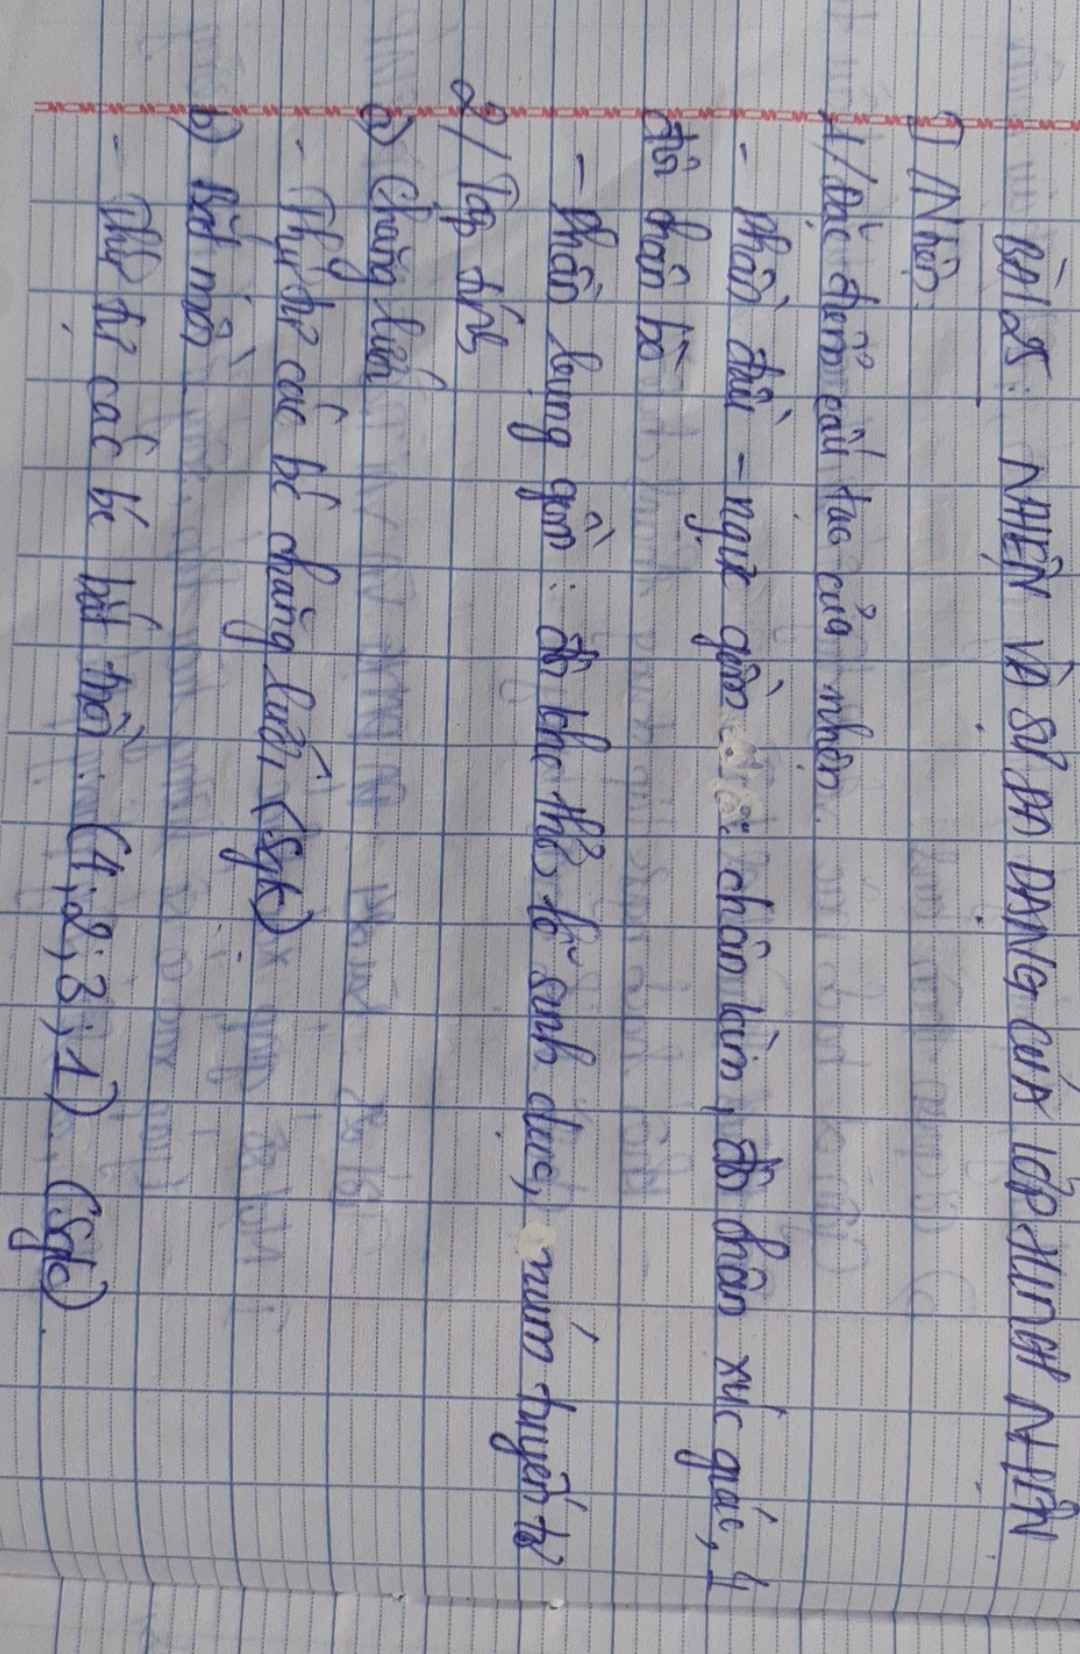 BÀI 25: NHỆN VÀ SỰ ĐA DẠNG CỦA LỚP HÌNH NHỆN
I) Nhện:
1/ Đặc điểm cấu tạo của nhện.
- Phần đầu - ngực gồm : chân kìm, đôi chân xúc giác, 4
đôi chân bò
- Phần bụng gồm : đôi khe thở, lỗ sinh dục, núm tuyến tơ
2/ Tập tính
a) Chăng lưới
- Thứ tự các bé chăng lưới, (Sgk)
b) Bắt mồi
- Thứ tự các bé bắt mồi : (4; 2; 3; 1) (Sgk).